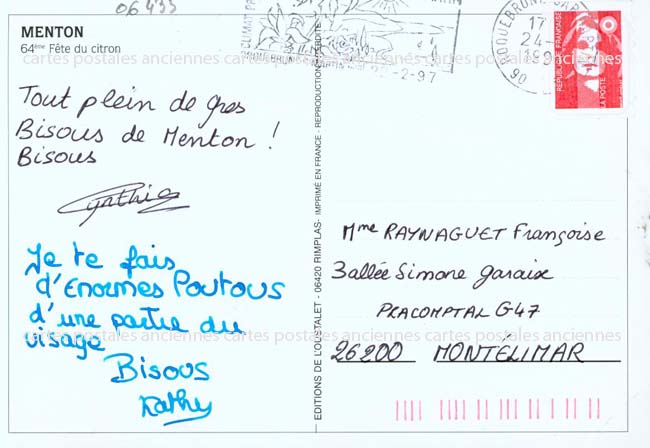 06 433
MENTON
64ème Fête du citron
cartes postales anciennes cartes postales anciennes cartes postales anciennes
ROQUEBRUNE CAP
17
24-
199
06
22-2-97
REPUBLIQUE FRANÇAISE
LA POSTE
Tout plein de gros
Bisous de Menton !
Bisous
Cathie
Je te fais
d'Enormes Poutous
d'une partie du
visage
Bisous
Kathy
EDITIONS DE L'OUSTALET - 06420 RIMPLAS - IMPRIMÉ EN FRANCE - REPRODUCTION
Mme RAYNAGUET Françoise
3 allée Simone garaix
PRACOMPTAL G47
cartes postales anciennes cartes postales anciennes cartes postales anciennes
26200 MONTÉLIMAR